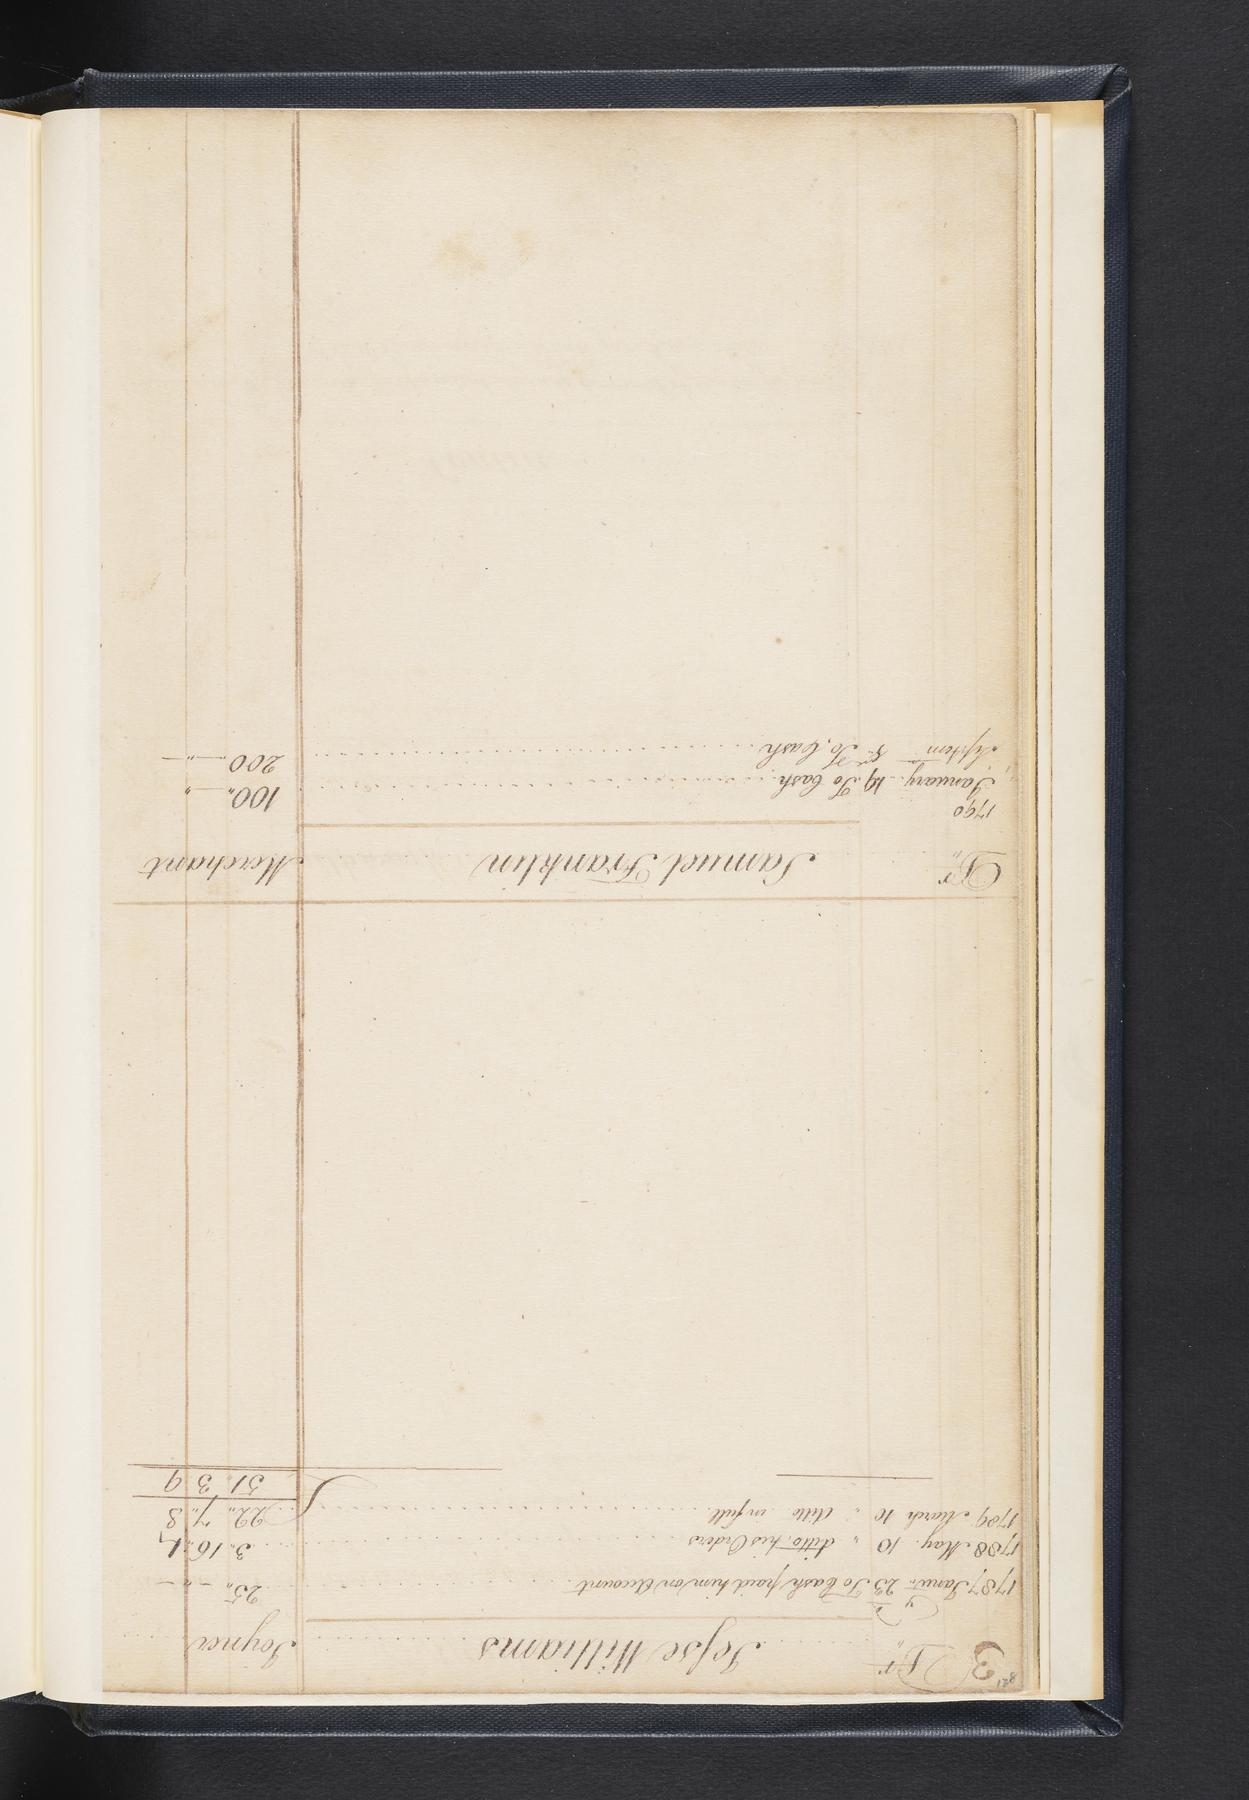 3 Dr. Jesse Williams Joyner
1787 Janur. 23 To Cash paid him on Account 25,, - ,, -
1788 May 10 " ditto his Orders 3.. 16.. 1
1789 March 10 " ditto in full 22,, 7,, 8
51. 3 9
Dr. Samuel Franklin Merchant
1790
January 19 To Cash 100,, - ,,
Septem. 8 To Cash 200 - ,, -